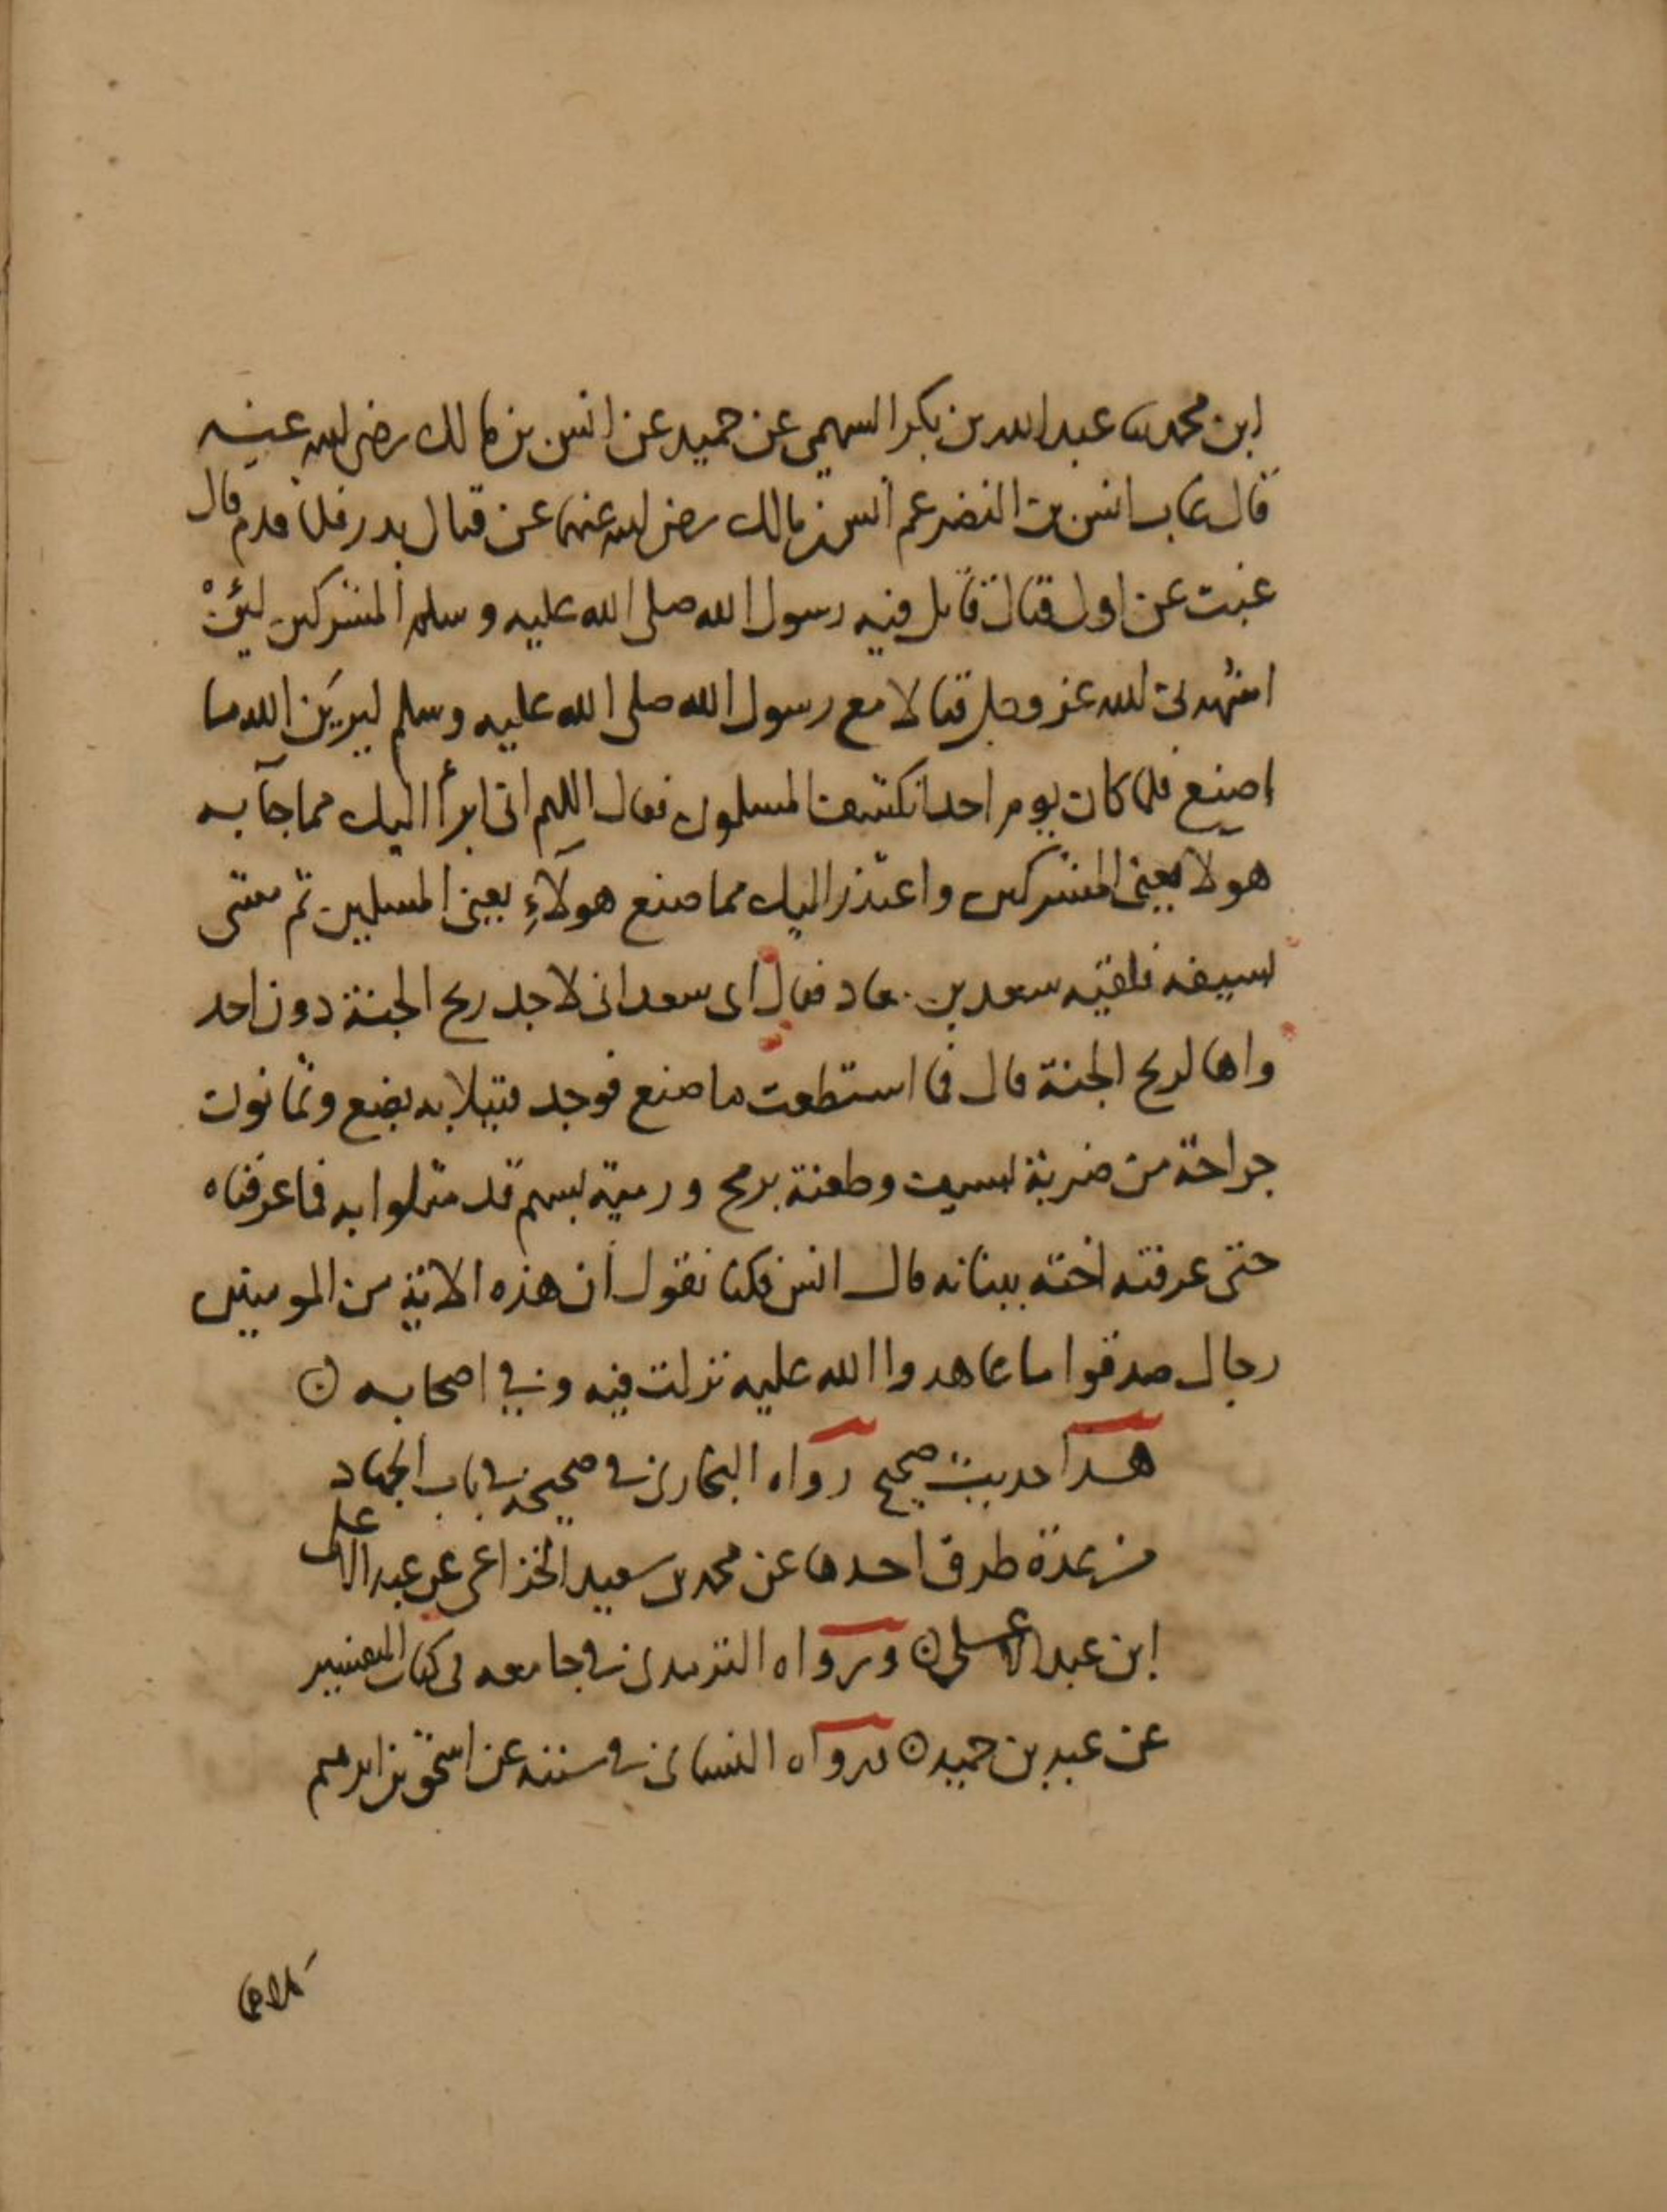 ابن محمد ثنا عبد الله بن بكر السهمي عن حميد عن انس بن مالك رضي الله عنه
قال غاب انس بن النضر عم انس بن مالك رضي الله عنهما عن قتال بدر فلما قدم قال
غبت عن اول قتال قاتل فيه رسول الله صلى الله عليه وسلم المشركين لئن
اشهدني الله عز وجل قتالا مع رسول الله صلى الله عليه وسلم ليرين الله ما
اصنع فلما كان يوم احد انكشف المسلمون فقال اللهم اني ابرأ اليك مما جآ به
هولآ يعني المشركين واعتذر اليك مما صنع هولآء يعني المسلمين ثم مشى
بسيفه فلقيه سعد بن معاد فقال اى سعد انى لاجد ريح الجنة دون احد
واها لريح الجنة قال فما استطعت ما صنع فوجد قتيلا به بضع وثمانون
جراحة من ضربة بسيف وطعنة برمح ورمية بسهم قد مثلوا به فما عرفناه
حتى عرفته اخته ببنانه قال انس فكنا نقول ان هذه الاية من المومنين
رجال صدقوا ما عاهدوا الله عليه نزلت فيه وفي اصحابه
هذا حديث صحيح رواه البخاري في صحيحه في باب الجهاد
من عدة طرق احدها عن محمد بن سعيد الخزاعي عن عبد الاعلى
ابن عبد الاعلى ورواه الترمدي في جامعه في كتاب التفسير
عن عبد بن حميد ورواه النسائي في سننه عن اسحق بن ابرهيم